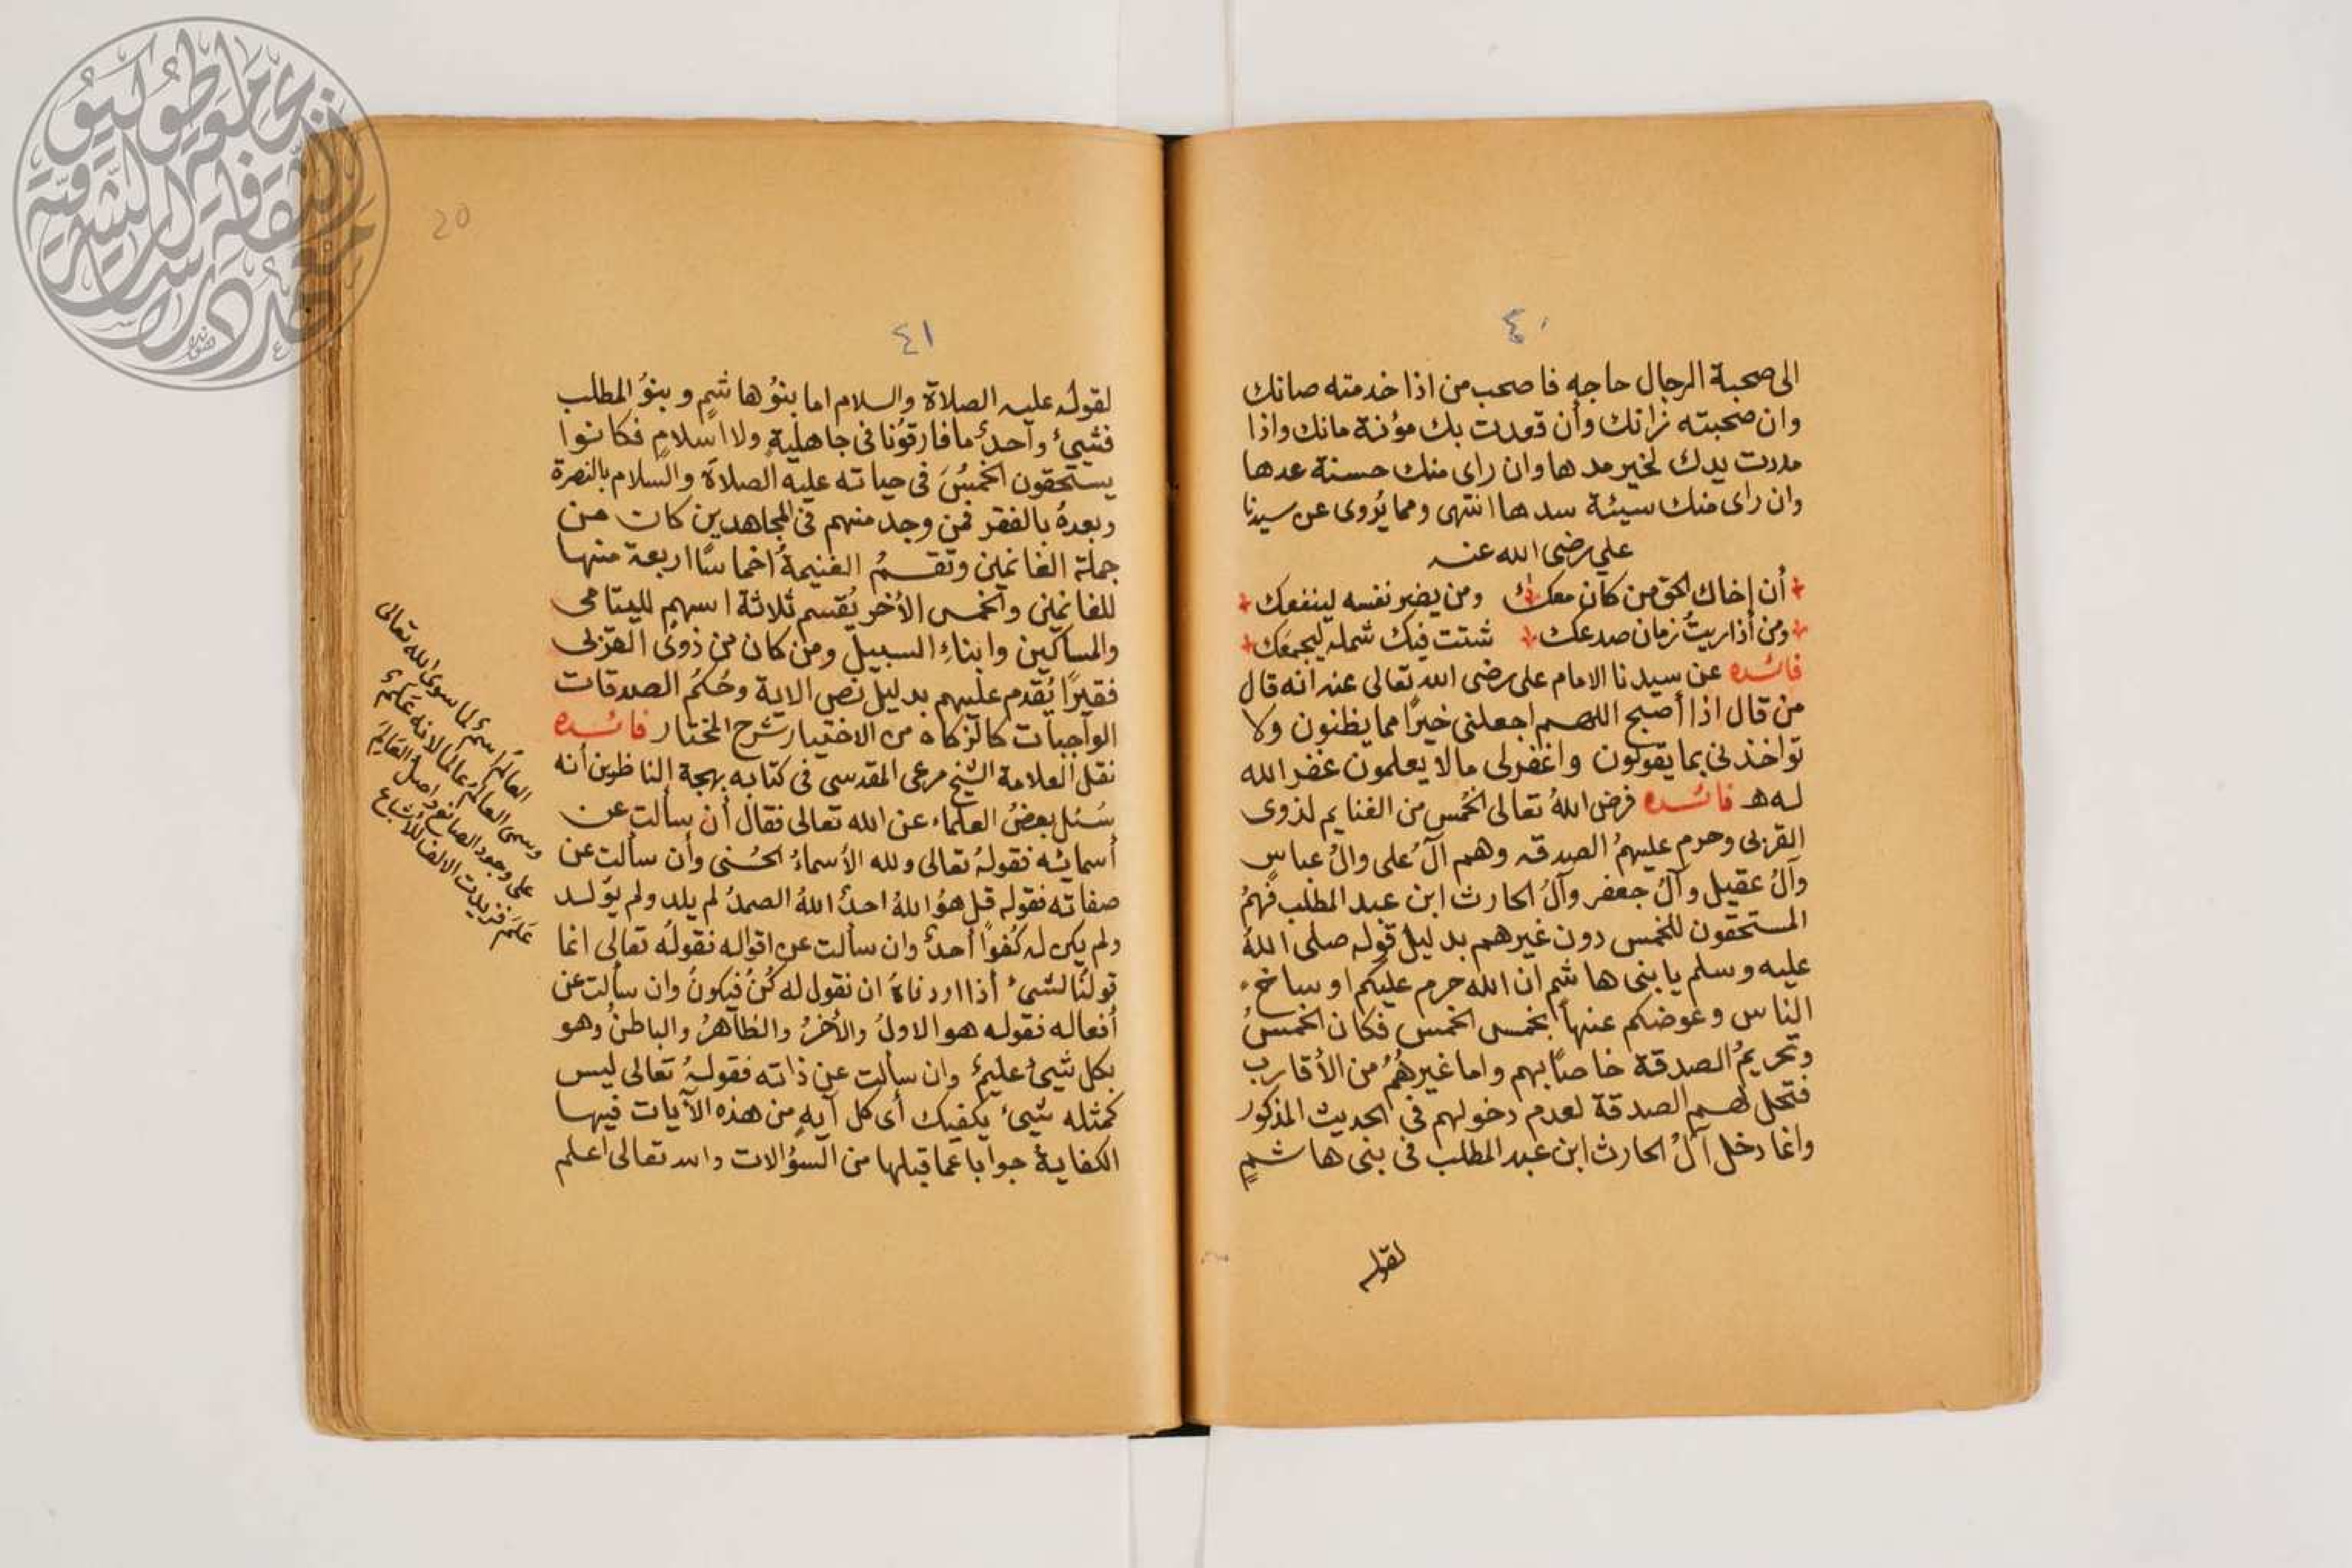 ٤٠
الى صحبة الرجال حاجه فاصحب من اذا خدمته صانك
وان صحبته زانك وأن قعدت بك مؤنة مانك واذا
مددت يدك لخير مدها وان راى منك حسنة عدها
وان راى منك سيئة سدها انتهى ومما يُروى عن سيدنا
على رضى الله عنه
أن إخاك الحق من كان معك ومن يضر نفسه لينفعك
ومن أذا ريبُ زمان صدعك شتت فيك شمله ليجمعك
فائده عن سيدنا الامام على رضى الله تعالى عنه انه قال
من قال اذا أصبح اللهم اجعلنى خيرًا مما يظنون ولا
تواخذنى بما يقولون واغفرلى مالا يعلمون غفر الله
له ه فائده فرض اللهُ تعالى الخُمس من الغنايم لذوى
القربى وحرم عليهمُ الصدقه وهم آلُ على والُ عباسٍ
وآلُ عقيل وآلُ جعفر وآلُ الحارث ابن عبد المطلب فهمُ
المستحقون للخمس دون غيرهم بدليل قوله صلى اللهُ
عليه وسلم يا بنى هاشم ان الله حرم عليكم اوساخ
الناس وعوضكم عنها بخمس الخمس فكان الخمسُ
وتحريمُ الصدقة خاصًا بهم واما غيرهُمُ من الأقارب
فتحل لهم الصدقة لعدم دخولهم فى الحديث المذكور
وانما دخل آلُ الحارث ابن عبد المطلب فى بنى هاشمٍ
لقوله
20
٤١
لقوله عليه الصلاة والسلام اما بنوُ هاشمٍ وبنوُ المطلب
فشيئٌ وآحدٌ ما فارقوُنا فى جاهليةٍ ولا اسلامٍ فكانوا
يستحقون الخمسَُ فى حياته عليه الصلاة والسلام بالنصرة
وبعدهُ بالفقر فمن وجد منهم فى المجاهدين كان من
جملة الغانمين وتقسمُ الغنيمةُ اخماسًا اربعة منها
للغانمين والخمس الأخر يُقسم ثلاثة اسهم لليتامى
والمساكين وابناءِ السبيل ومن كان من ذوى القربى
فقيرًا يُقدم عليهم بدليل نص الاية وحُكمُ الصدقات
الواجبات كالزكاه من الاختيار شرح المختار فائده
نقل العلامة الشيخ مرعى المقدسى فى كتابه بهجة الناظرين أنه
سُئل بعضُ العلماء عن الله تعالى فقال أن سألت عن
أسمائه فقولهُ تعالى ولله الأسماءُ الحُسنى وأن سألت عن
صفاته فقوله قل هوُ اللهُ احدٌ اللهُ الصمدُ لم يلد ولم يوُلد
ولم يكن له كُفوًا أحدٌ وان سألت عن اقواله فقولُه تعالى انما
قولنُا لشئ أذا اردناهُ ان نقول له كُن فيكونُ وان سألت عن
أفعاله فقوله هو الاولُ والأخرُ والظآهرُ والباطنُ وهو
بكل شيئ عليمٌ وان سألت عن ذاته فقولهُ تعالى ليس
كمثله شيئٌ يكفيك أى كل آيهٍ من هذه الآيات فيها
الكفايةُ جوابا عما قبلها من السؤالات والله تعالى اعلم
العالمُ اسمٌ لما سوى الله تعالى
وسمى العالمُ عالما لانه عَلمٌ
على وجود الصانع واصل العالم
عَلَم فزيدت الالف للأشباع